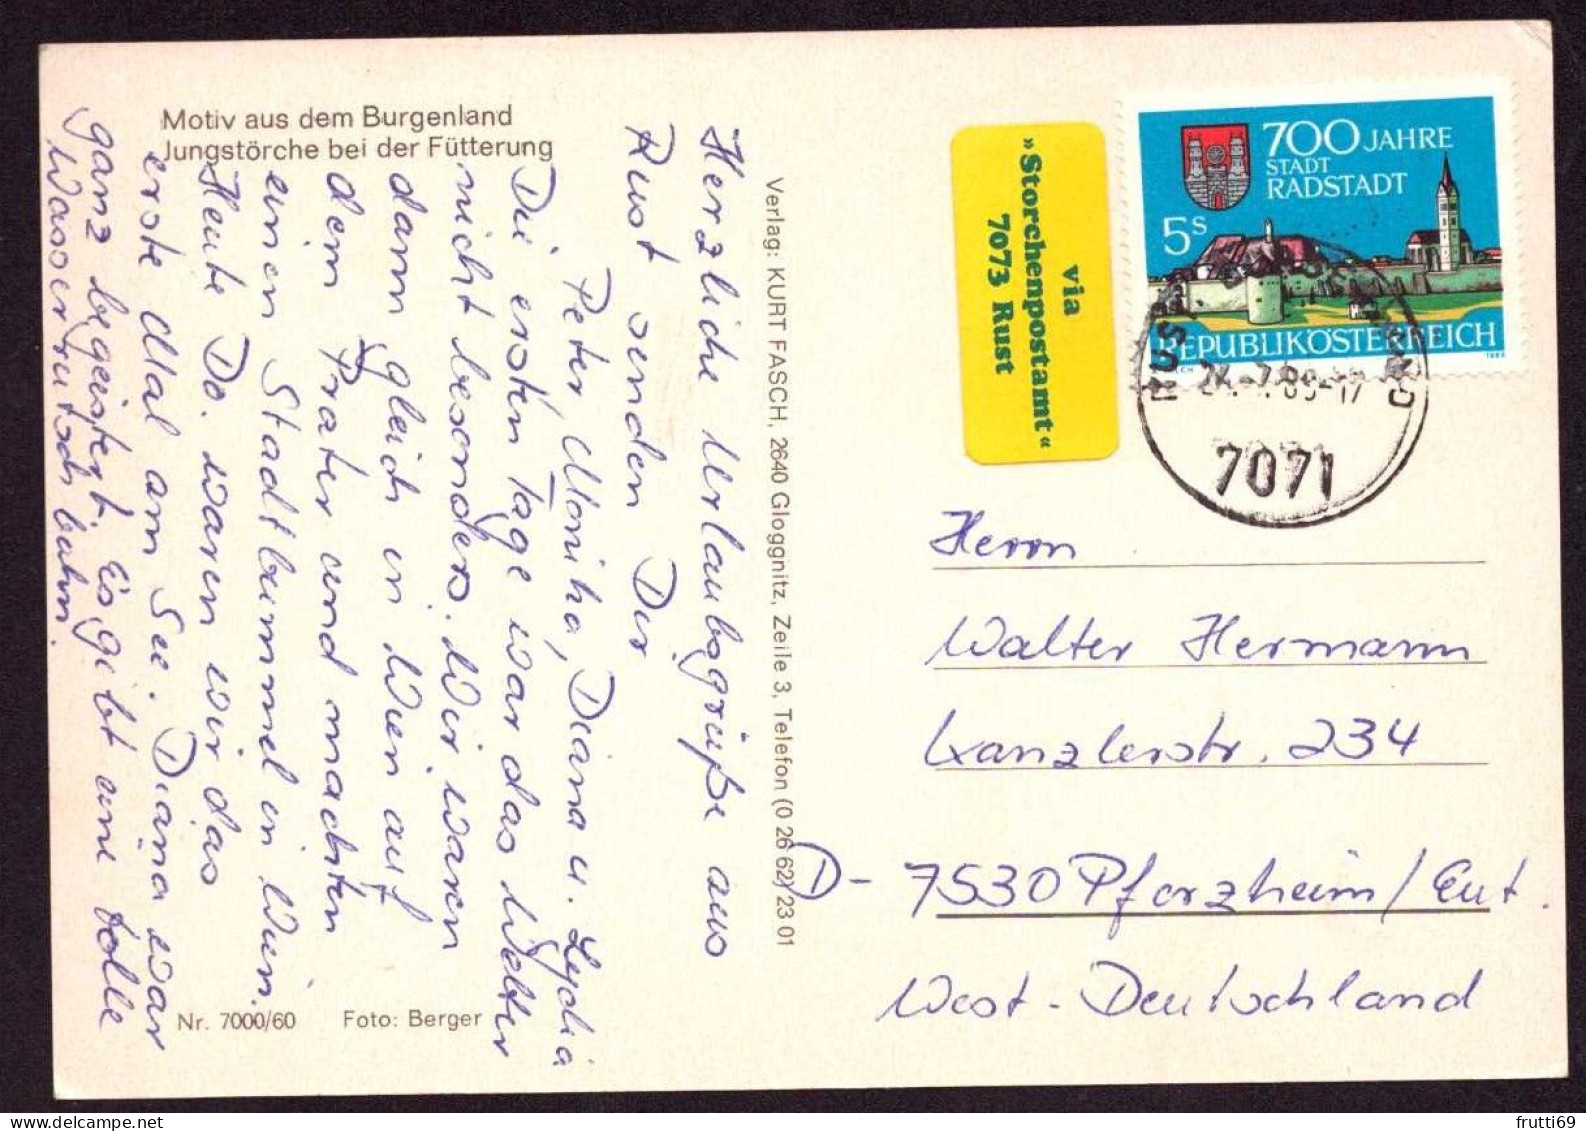 Motiv aus dem Burgenland
Jungstörche bei der Fütterung
Herzliche Urlaubsgrüße aus
Rust senden Dir
Peter, Monika, Diana u. Lydia
Die ersten Tage war das Wetter
nicht besonders. Wir waren
dann gleich in Wien auf
dem Prater und machten
einen Stadtbummel in Wien.
Heute Do. waren wir das
erste Mal am See. Diana war
ganz begeistert. Es gibt eine tolle
Wasserrutschbahn.
Nr. 7000/60
Foto: Berger
Verlag: KURT FASCH, 2640 Gloggnitz, Zeile 3, Telefon (0 26 62) 23 01
via
»Storchenpostamt«
7073 Rust
700 JAHRE
STADT
RADSTADT
5s
REPUBLIK ÖSTERREICH
1989
7071
Herrn
Walter Hermann
Kanzlerstr. 234
D-7530 Pforzheim/Eut.
West-Deutschland
frutti69